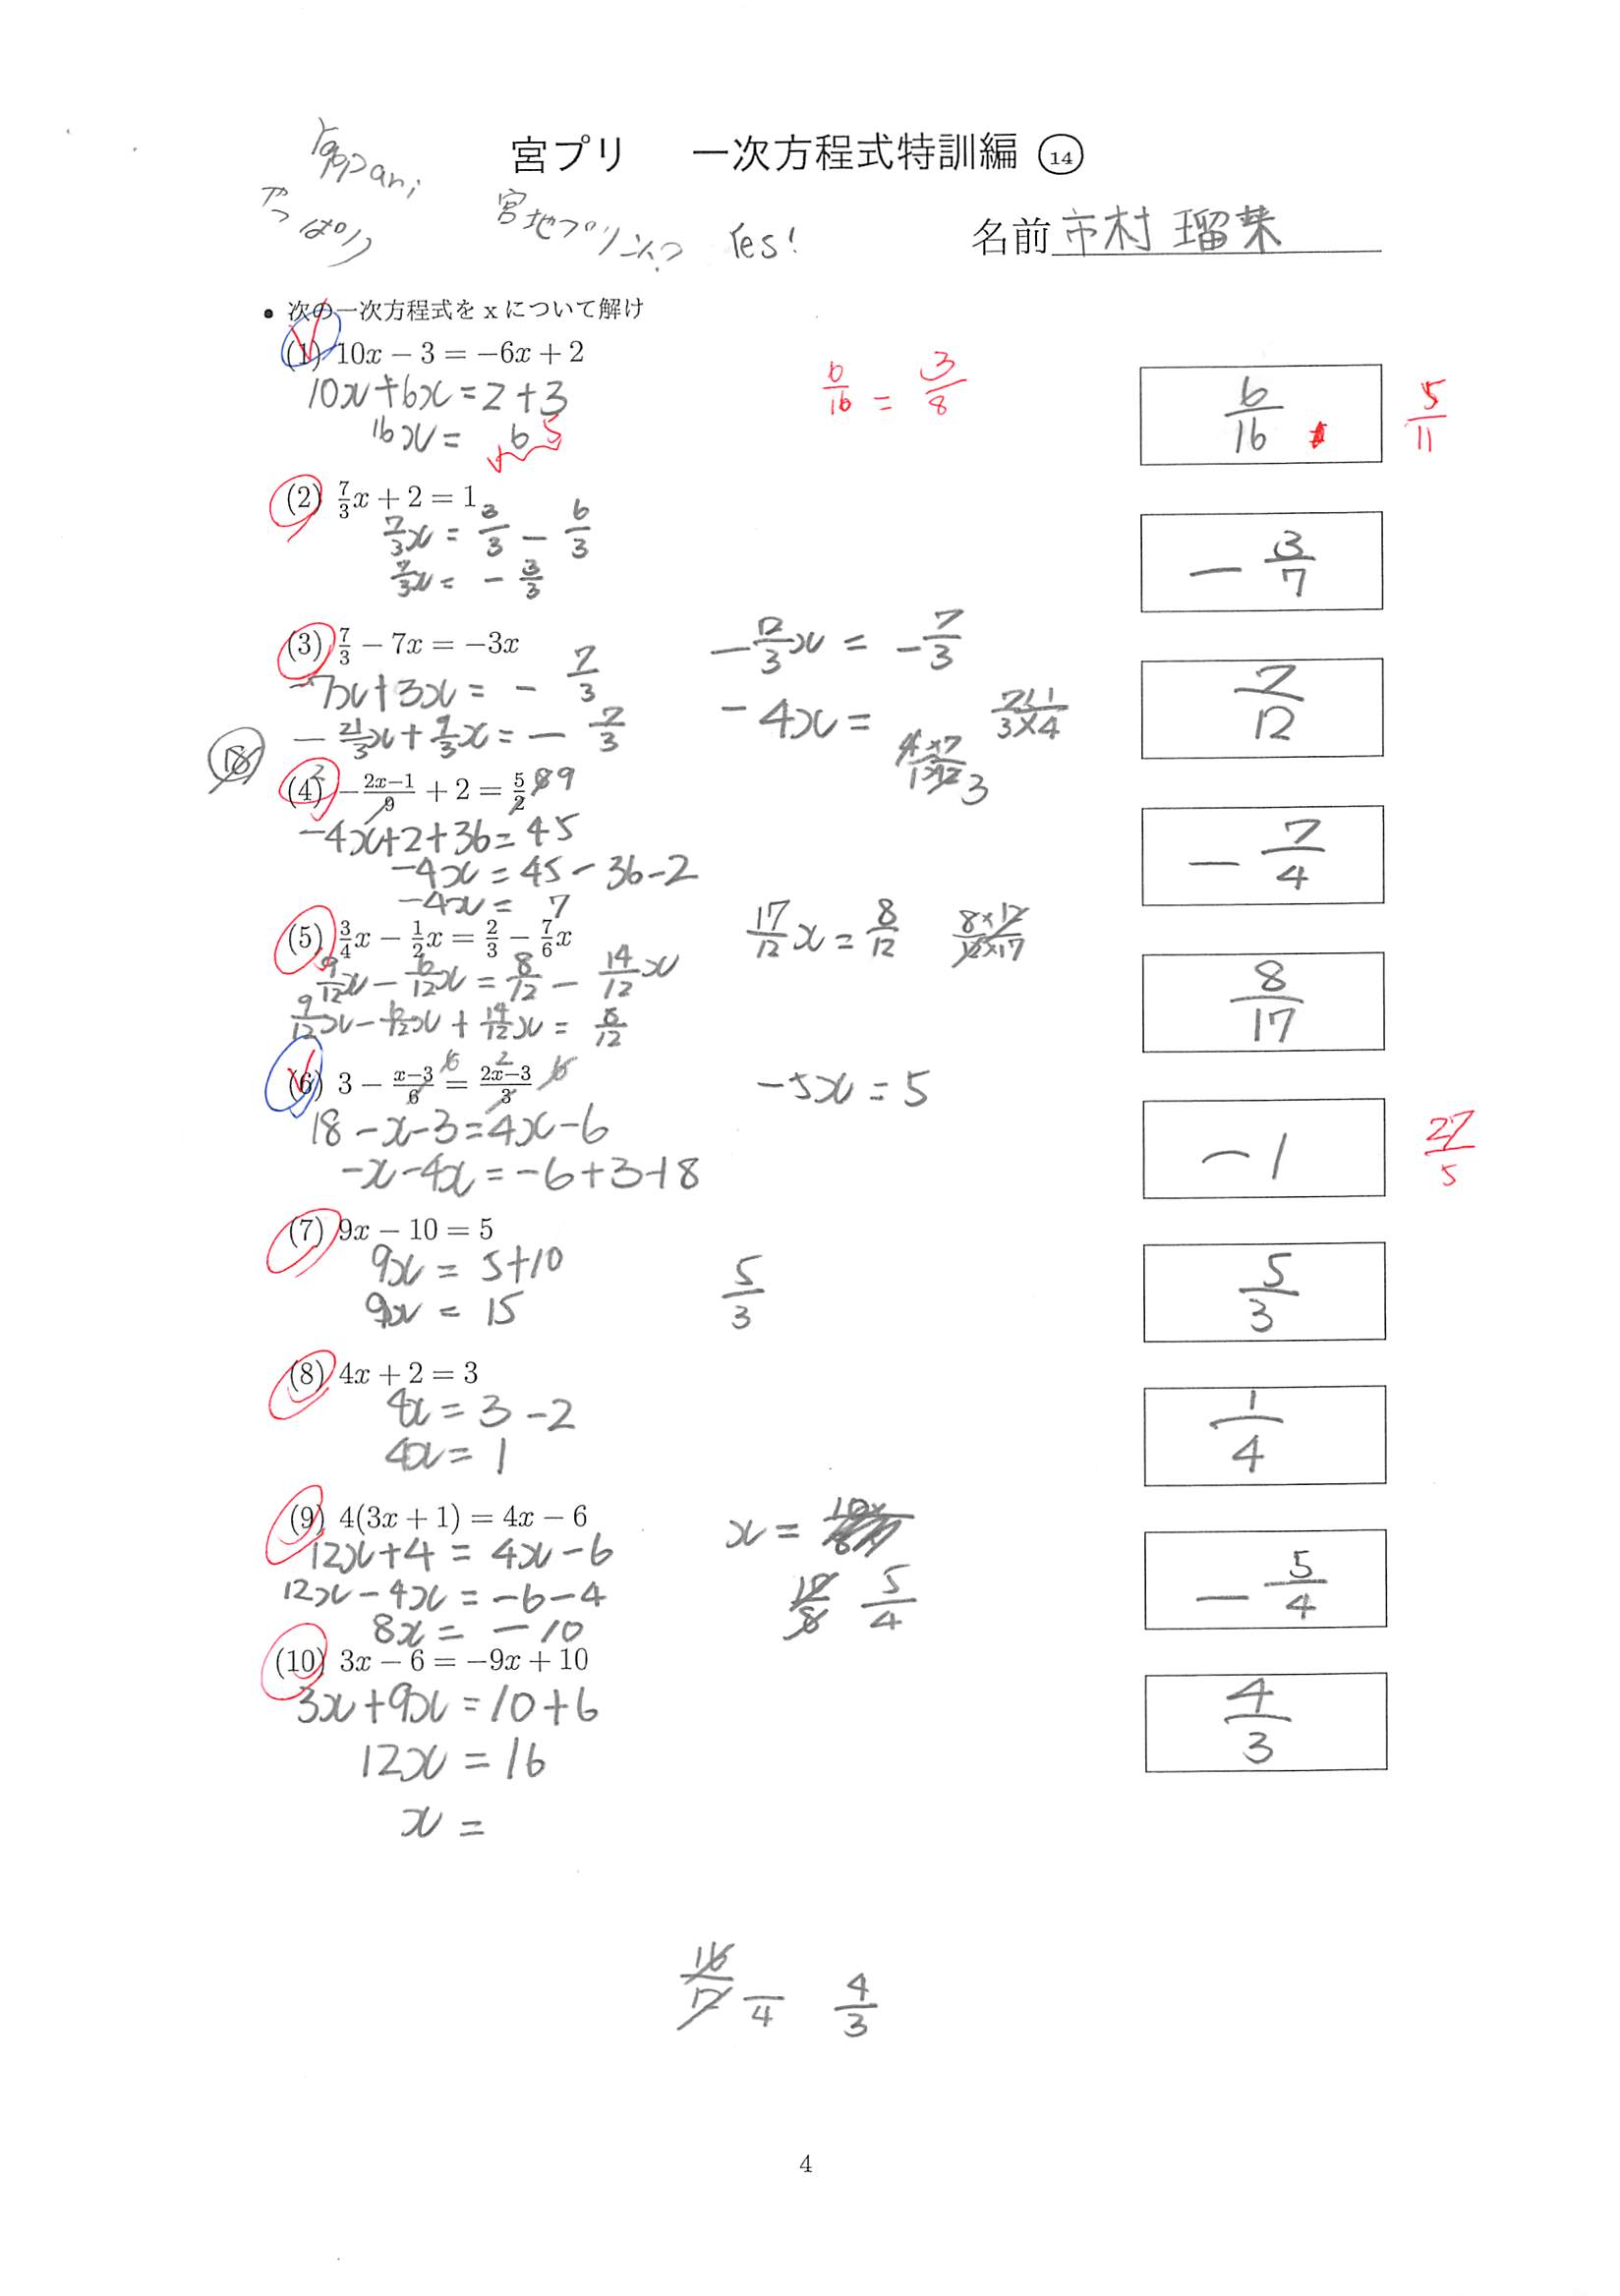 Yappari
やっぱり
宮プリ 一次方程式特訓編 ⑭
宮地プリント? Yes!
名前 市村 瑠菜
• 次の一次方程式をxについて解け
(1) 10x − 3 = −6x + 2
10x+6x=2+3
16x= 6 5
6/16 = 3/8
6/16
5/11
(2) 7/3x + 2 = 1
7/3x = 3/3 − 6/3
7/3x = − 3/3
− 3/7
(3) 7/3 − 7x = −3x
−7x+3x = − 7/3
− 21/3x + 9/3x = − 7/3
− 12/3x = − 7/3
− 4x =
7×1/3×4
7/12
⑱
(4) −(2x−1)/9 + 2 = 5/2 9
−4x+2+36=45
−4x=45−36−2
−4x= 7
− 7/4
(5) 3/4x − 1/2x = 2/3 − 7/6x
9/12x − 6/12x = 8/12 − 14/12x
9/12x − 6/12x + 14/12x = 8/12
17/12x = 8/12 8×12/12×17
8/17
(6) 3 − (x−3)/6 = (2x−3)/3
18−x−3=4x−6
−x−4x=−6+3+8
−5x=5
−1
27/5
(7) 9x − 10 = 5
9x = 5+10
9x = 15
5/3
5/3
(8) 4x + 2 = 3
4x = 3−2
4x = 1
1/4
(9) 4(3x + 1) = 4x − 6
12x+4 = 4x−6
12x−4x = −6−4
8x = −10
x =
10/8 5/4
− 5/4
(10) 3x − 6 = −9x + 10
3x+9x=10+6
12x=16
x =
4/3
16/12 /4 4/3
4